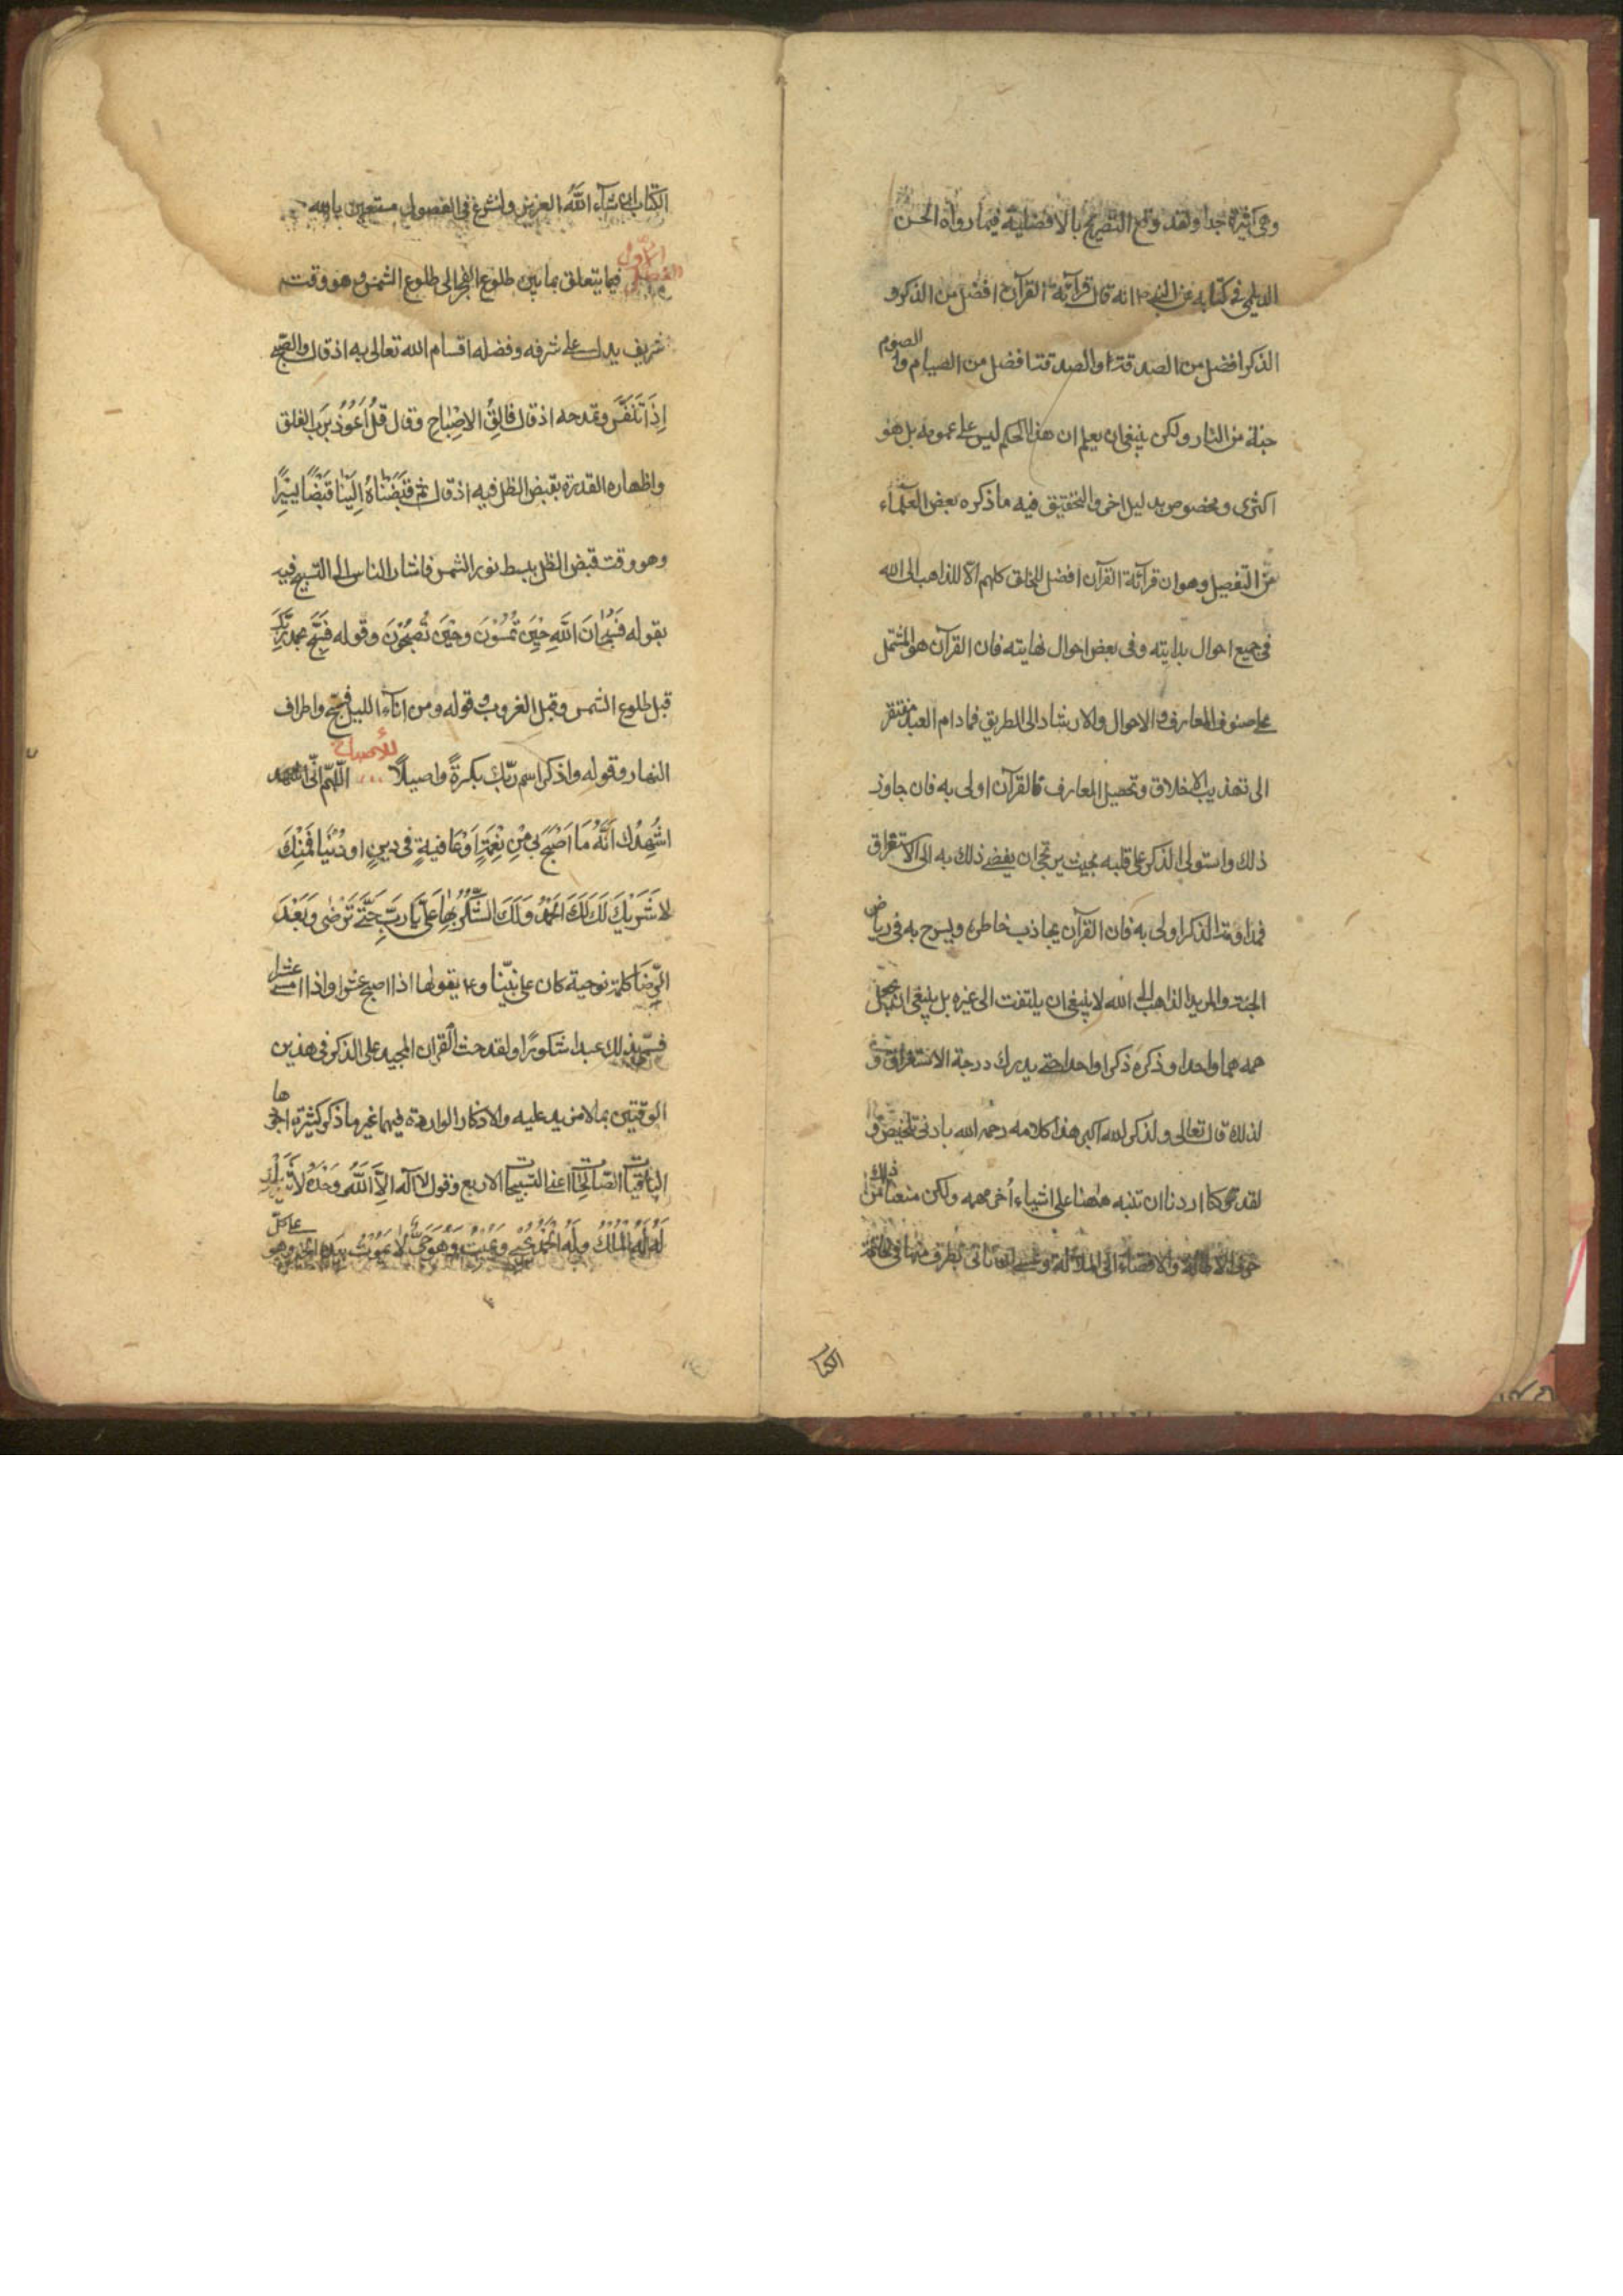 وهي كثيرة جدا ولقد وقع التصريح بالافضلية فيما رواه الحسن
الديلمي في كتابه عن النبي ص انه قال قرآئة القرآن افضل من الذكر و
الذكر افضل من الصدقة والصدقة افضل من الصيام والصوم
جنة من النار ولكن ينبغي ان يعلم ان هذا الحكم ليس على عمومه بل هو
اكثرى ومخصوص بدليل اخر والتحقيق فيه ما ذكره بعض العلمآء
من التفصيل وهو ان قرآئة القرآن افضل للخلق كلهم الا للذاهب الى الله
في جميع احوال بدايته وفى بعض احوال نهايته فان القرآن هو المشتمل
على صنوف المعارف والاحوال والارشاد الى الطريق فما دام العبد مفتقر
الى تهذيب الاخلاق وتحصيل المعارف فالقرآن اولى به فان جاوز
ذلك واستولى الذكر على قلبه بحيث يرتجى ان يفضي ذلك به الى الاستغراق
فمداومة الذكر اولى به فان القرآن يجاذب خاطره ويسرح به فى رياض
الجنة والمريد الذاهب الى الله لا ينبغي ان يلتفت الى غيره بل ينبغي ان يجعل
همه هما واحدا وذكره ذكرا واحدا حتى يدرك درجة الاستغراق و
لذلك قال تعالى ولذكر الله اكبر هذا كلامه رحمه الله بادنى تلخيص و
لقد كنا اردنا ان ننبه ههنا على اشياء أخر مهمه ولكن منعنا من ذلك
خوف الاطالة والافضاء الى الملالة وعسى ان ناتى بطرف منها فى خاتمة
الكتا
الكتاب ان شآء الله العزيز ولنشرع في الفصول مستعين بالله
الفصل الاول فيما يتعلق بما بين طلوع الفجر الى طلوع الشمس وهو وقت
شريف يدل على شرفه وفضله اقسام الله تعالى به اذ قال والصبح
إِذَا تَنَفَّسَ وتمدحه اذ قال فالِقُ الاِصْباحِ وقال قُلْ اَعُوذُ بِرَبِّ الفلق
واظهاره القدرة بقبض الظل فيه اذ قال ثم قَبَضْنَاهُ اِلَيْنا قَبْضًا يَسِيرًا
وهو وقت قبض الظل ببسط نور الشمس فاشار الناس الى التسبيح فيه
بقوله فَسُبْحانَ اللَّهِ حِينَ تُمْسُونَ وَحِينَ تُصْبِحُونَ وقوله فَسَبِّحْ بحمد رَبِّكَ
قبل طلوع الشمس وقبل الغروب وقوله ومن انآء الليل فسبح واطراف
النهار وقوله واذكر اسم ربّك بكرةً واصيلًا للأصباح اللّهمّ انّى
اُشْهِدُكَ اَنَّهُ مَا اَصْبَحَ بى مِنْ نِعْمَةٍ اَوْ عَافِيَةٍ فى دينٍ او دُنْيا فَمِنْكَ
لا شَرِيكَ لَكَ لَكَ الحَمْدُ وَلَكَ الشُّكْرُ بِها عَلَىَّ يَا رَبِّ حَتّى تَرْضى وَبَعْدَ
الرِّضَا كلمة نوحية كان على نبيّنا وع يقولها اذا اصبح عشرا واذا امسى عشرا
فسمّى بذلك عبدا شكورًا ولقد حث القرآن المجيد على الذكر في هذين
الوقتين بما لا مزيد عليه والاذكار الواردة فيهما غير ما ذكر كثيرة اجمعها
الباقيات الصالحات اعنى التسبيحات الاربع وقول لا اله الّا اللّه وَحْدَهُ لا شَرِيكَ
لَهُ لَهُ المُلْكُ وَلَهُ الحَمْدُ يُحْيى وَيُمِيتُ وَهُوَ حَىٌّ لا يَمُوتُ بِيَدِهِ الخير وهو على كلّ